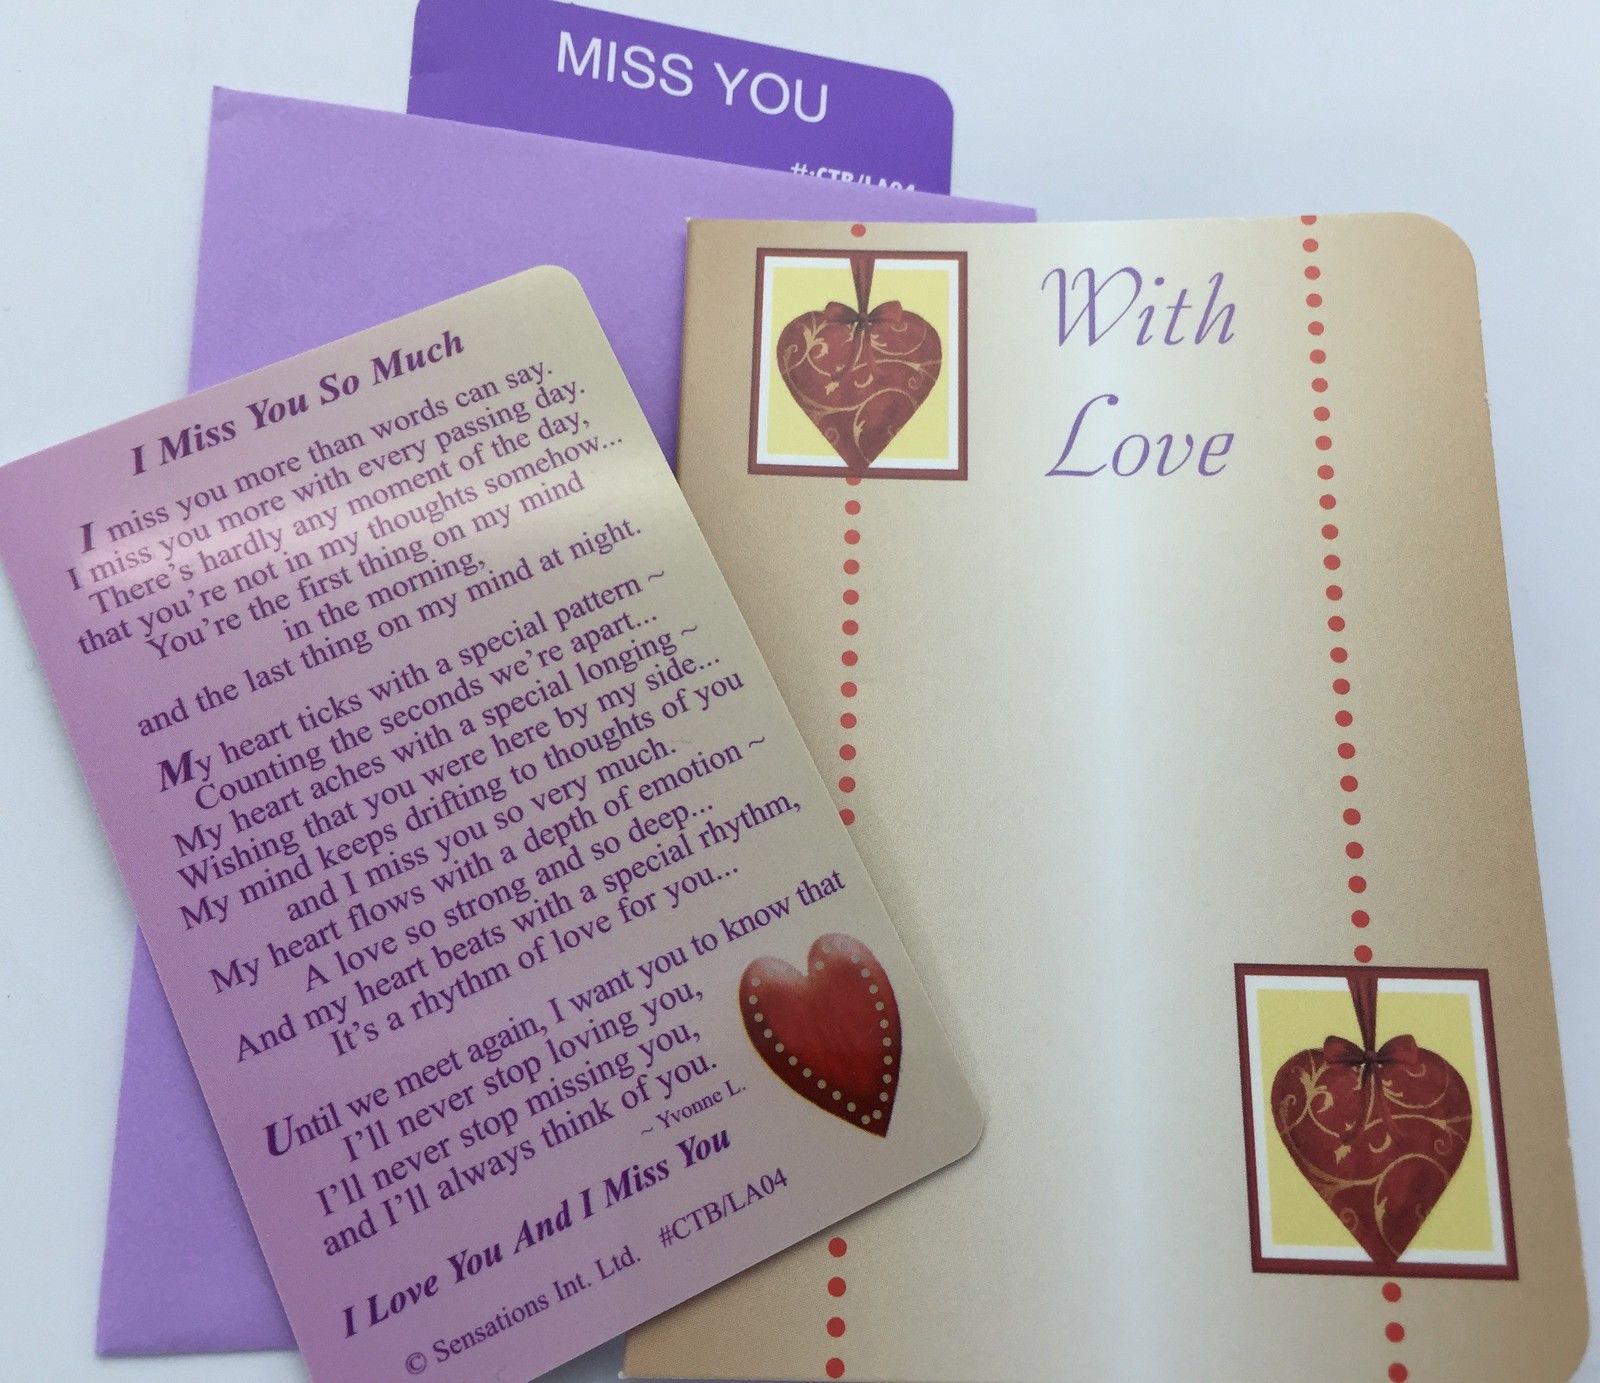 MISS YOU
#:CTB/LA04
With
Love
I Miss You So Much
I miss you more than words can say.
I miss you more with every passing day.
There's hardly any moment of the day,
that you're not in my thoughts somehow...
You're the first thing on my mind
in the morning,
and the last thing on my mind at night.
My heart ticks with a special pattern ~
Counting the seconds we're apart...
My heart aches with a special longing ~
Wishing that you were here by my side...
My mind keeps drifting to thoughts of you
and I miss you so very much.
My heart flows with a depth of emotion ~
A love so strong and so deep...
And my heart beats with a special rhythm,
It's a rhythm of love for you...
Until we meet again, I want you to know that
I'll never stop loving you,
I'll never stop missing you,
and I'll always think of you.
~ Yvonne L.
I Love You And I Miss You
© Sensations Int. Ltd. #CTB/LA04